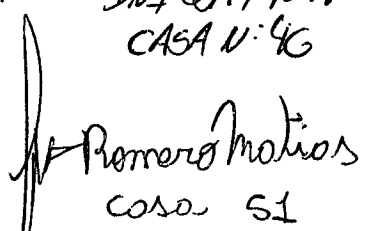 CASA N: 46
Romero Matias
casa 51